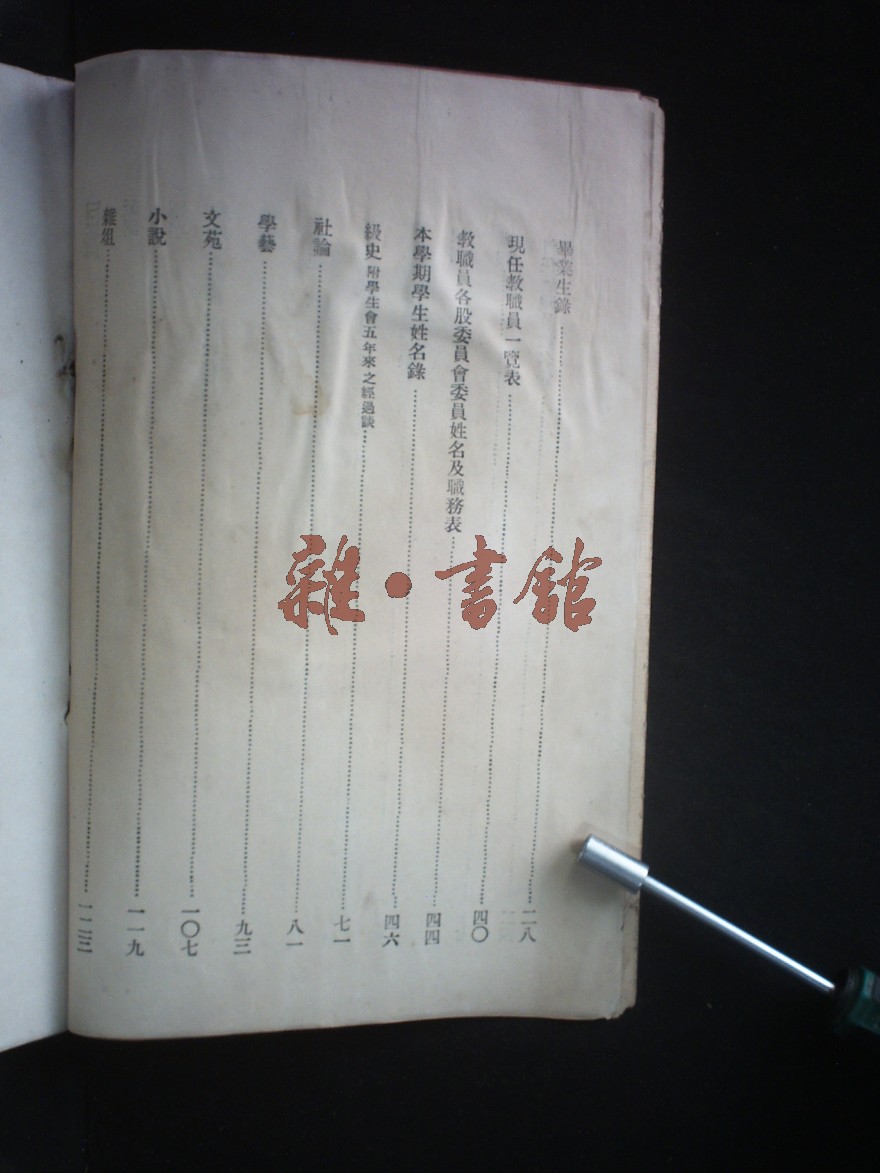 畢業生錄……二八
現任教職員一覽表……四〇
教職員各股委員會委員姓名及職務表……四四
本學期學生姓名錄……四六
級史 附學生會五年來之經過談……七一
社論……八一
學藝……九三
文苑……一〇七
小說……一一九
雜俎……一二三
雜·書館